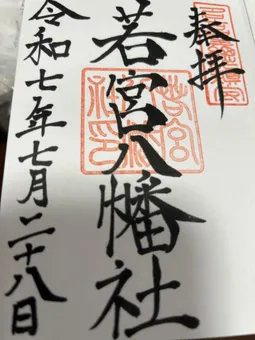 奉拝
若宮八幡社
令和七年七月二十八日